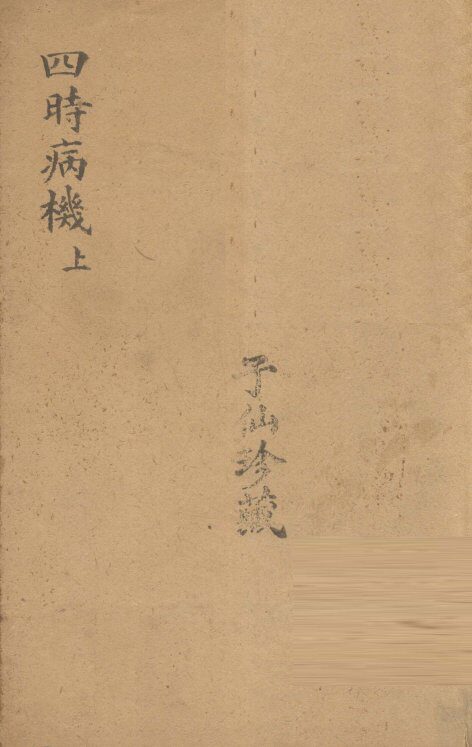 四時病機上
子仙珍藏